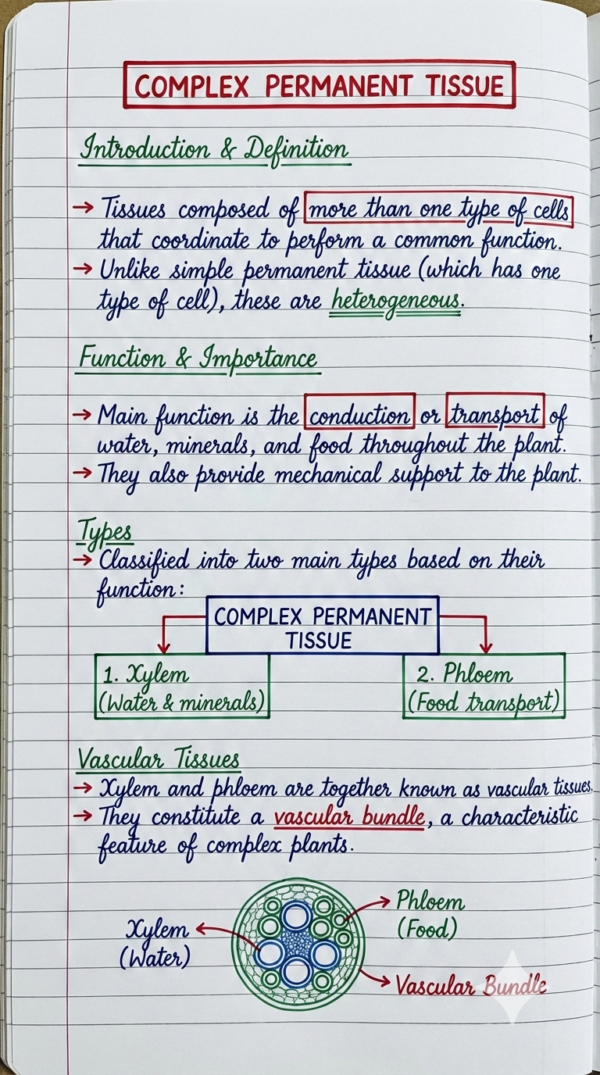 COMPLEX PERMANENT TISSUE
Introduction & Definition
→ Tissues composed of more than one type of cells
that coordinate to perform a common function.
→ Unlike simple permanent tissue (which has one
type of cell), these are heterogeneous.
Function & Importance
→ Main function is the conduction or transport of
water, minerals, and food throughout the plant.
→ They also provide mechanical support to the plant.
Types
→ Classified into two main types based on their
function:
COMPLEX PERMANENT
TISSUE
1. Xylem
(Water & minerals)
2. Phloem
(Food transport)
Vascular Tissues
→ Xylem and phloem are together known as vascular tissues.
→ They constitute a vascular bundle, a characteristic
feature of complex plants.
Xylem
(Water)
Phloem
(Food)
Vascular Bundle